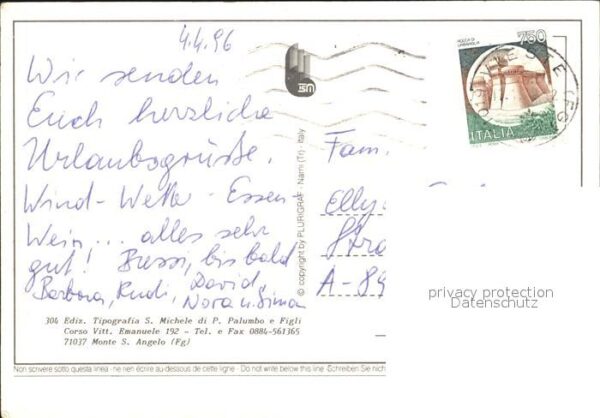 4.4.96
Wir senden
Euch herzliche
Urlaubsgrüße.
Wind - Wetter - Essen -
Wein ... alles sehr
gut! Bussi, bis bald
Barbara, Rudi, David,
Nora u. Simon
304 Ediz. Tipografia S. Michele di P. Palumbo e Figli
Corso Vitt. Emanuele 192 - Tel. e Fax 0884-561365
71037 Monte S. Angelo (Fg)
© copyright by PLURIGRAF - Narni (Tr) - Italy
750
ROCCA DI
URBISAGLIA
ITALIA
Fam.
Elly
Stra
A-89
privacy protection
Datenschutz
Non scrivere sotto questa linea - ne rien écrire au-dessous de cette ligne - Do not write below this line - Schreiben Sie nich